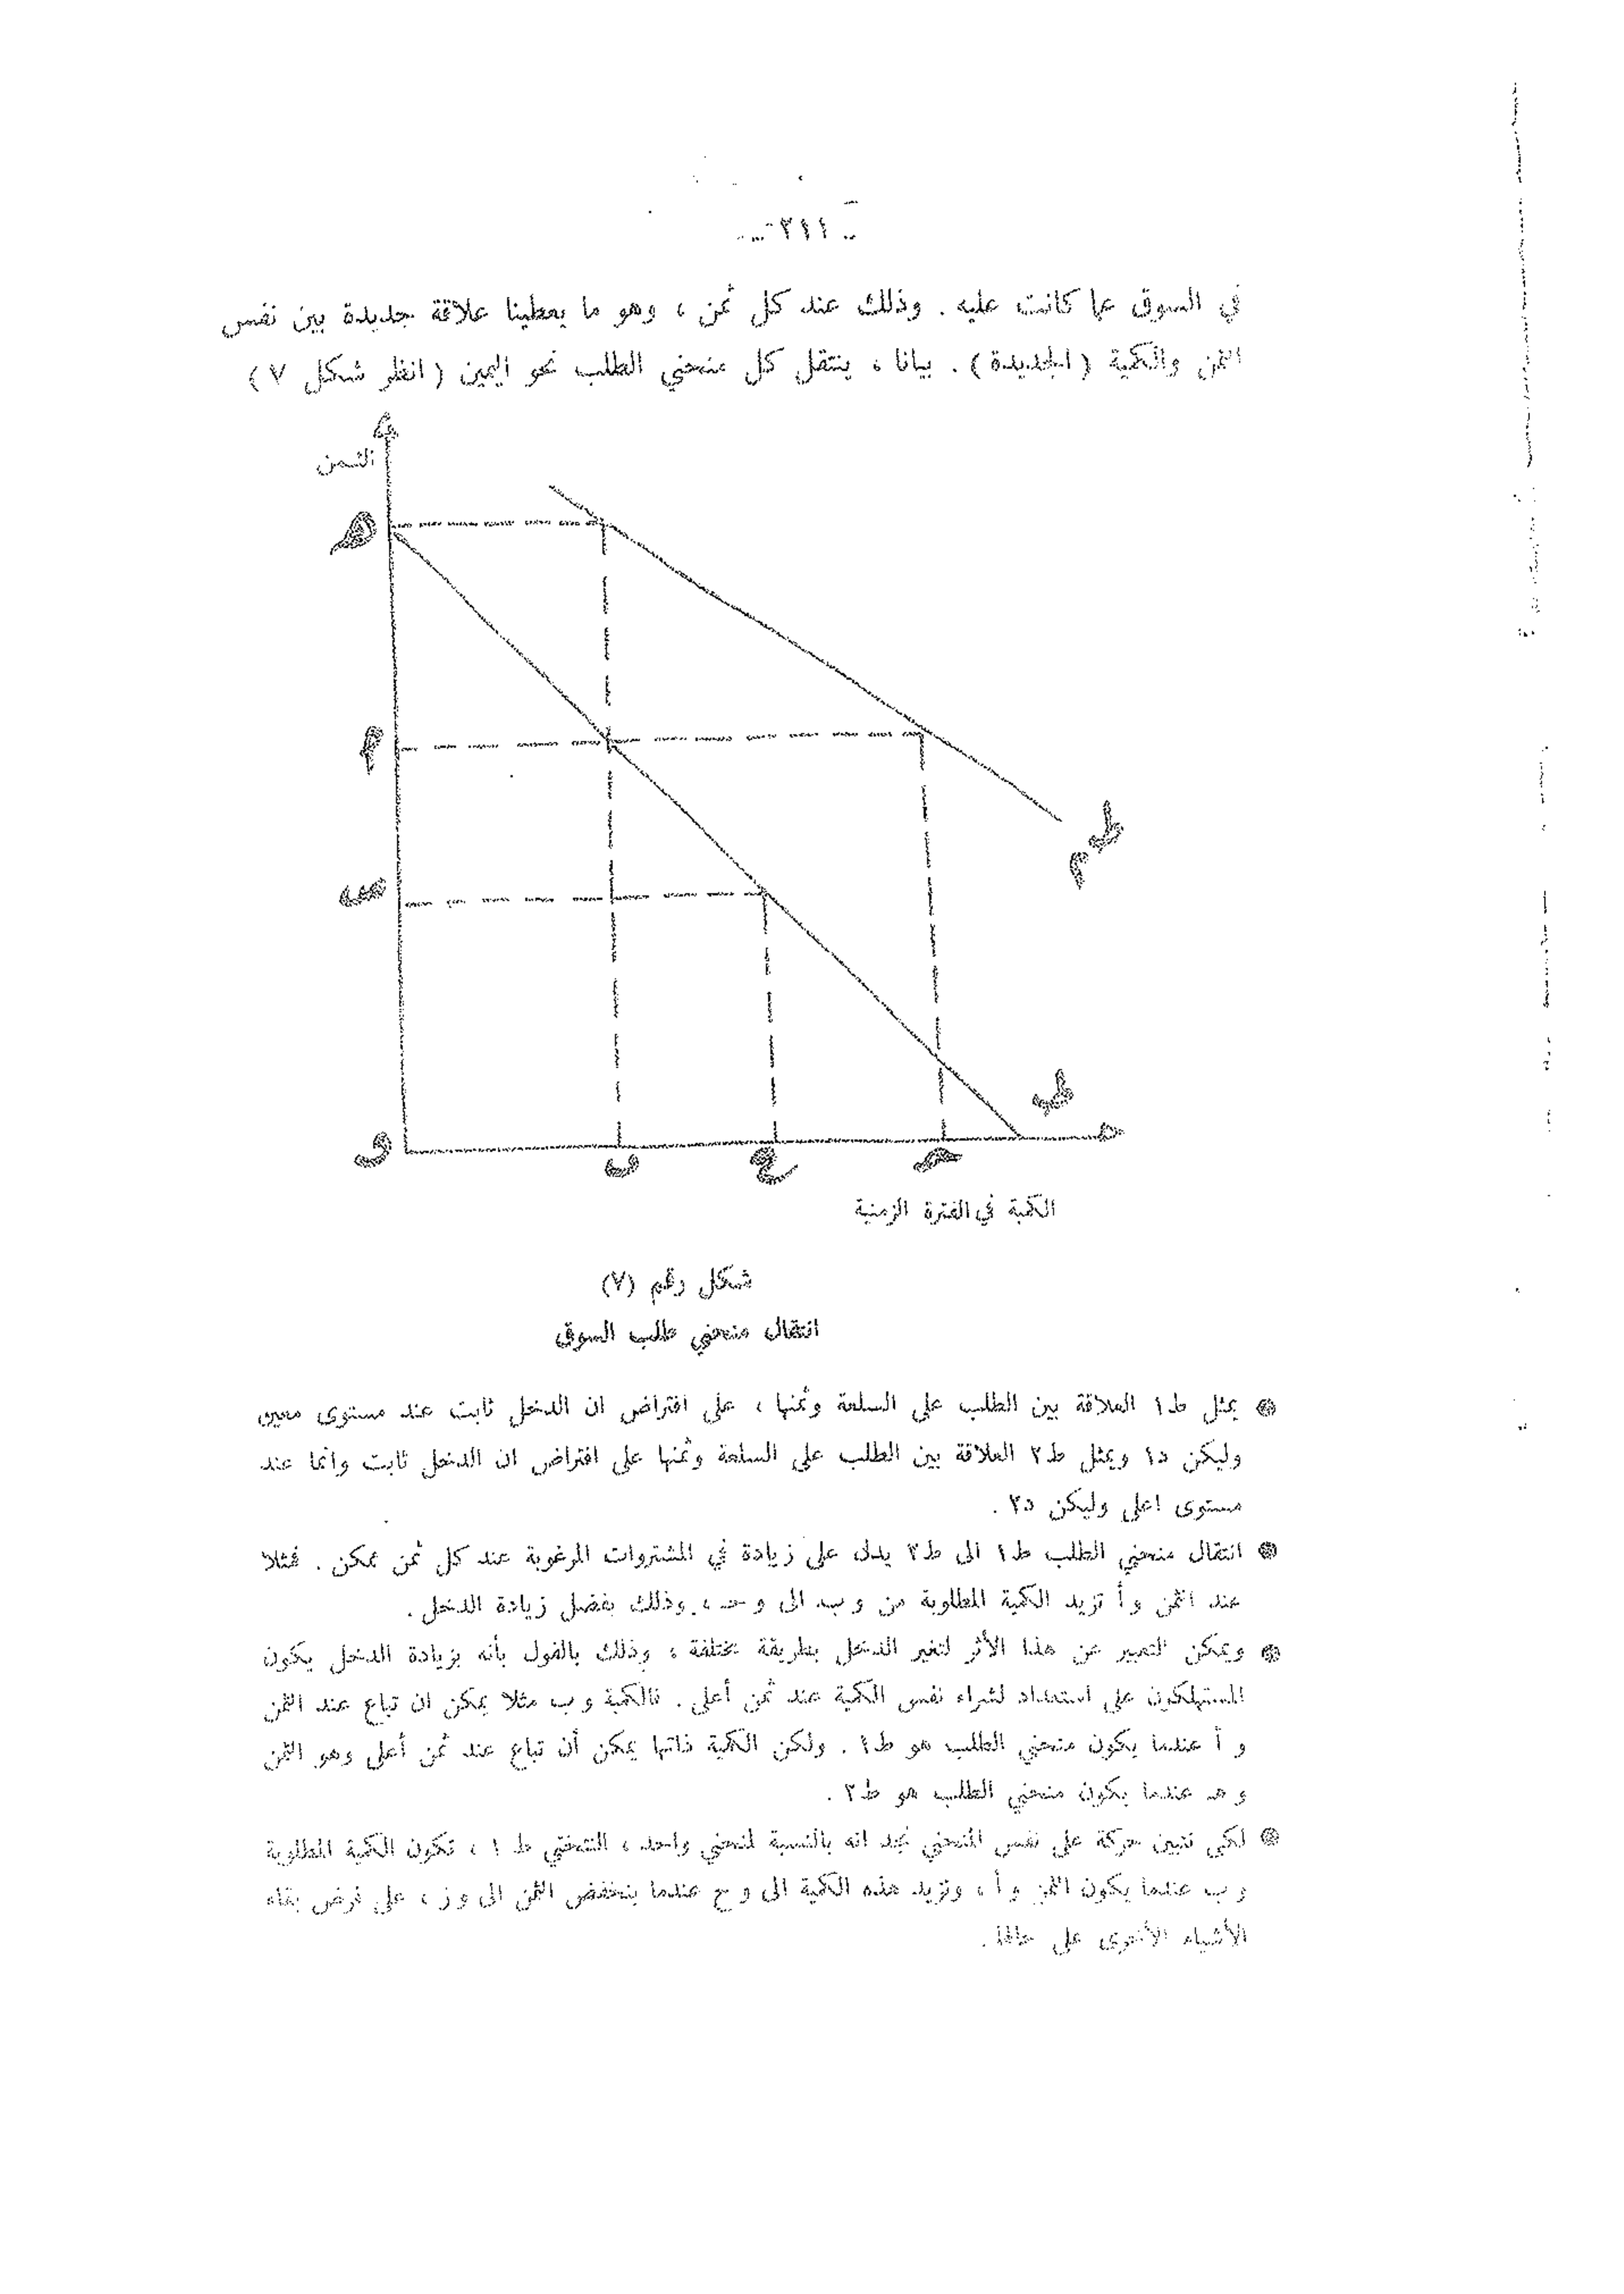 - ٢١١ -
في السوق عما كانت عليه . وذلك عند كل ثمن ، وهو ما يعطينا علاقة جديدة بين نفس
الثمن والكمية ( الجديدة ) . بيانا ، ينتقل كل منحني الطلب نحو اليمين ( انظر شكل ٧ )
الثمن
هـ
أ
و
ب
ح
حـ
الكمية في الفترة الزمنية
شكل رقم (٧)
انتقال منحني طلب السوق
يمثل ط١ العلاقة بين الطلب على السلعة وثمنها ، على افتراض ان الدخل ثابت عند مستوى معين
وليكن د١ ويمثل ط٢ العلاقة بين الطلب على السلعة وثمنها على افتراض ان الدخل ثابت وانما عند
مستوى اعلى وليكن د٢ .
انتقال منحني الطلب ط١ الى ط٢ يدل على زيادة في المشتروات المرغوبة عند كل ثمن ممكن . فمثلا
عند الثمن و أ تزيد الكمية المطلوبة من و ب الى و حـ ، وذلك بفضل زيادة الدخل .
ويمكن التعبير عن هذا الأثر لتغير الدخل بطريقة مختلفة ، وذلك بالقول بأنه بزيادة الدخل يكون
المستهلكون على استعداد لشراء نفس الكمية عند ثمن أعلى . فالكمية و ب مثلا يمكن ان تباع عند الثمن
و أ عندما يكون منحني الطلب هو ط١ . ولكن الكمية ذاتها يمكن أن تباع عند ثمن أعلى وهو الثمن
و هـ عندما يكون منحني الطلب هو ط٢ .
لكي نتبين حركة على نفس المنحني نجد انه بالنسبة لمنحني واحد ، ط ١ ، تكون الكمية المطلوبة
و ب عندما يكون الثمن و أ ، وتزيد هذه الكمية الى و ح عندما ينخفض الثمن الى و ز ، على فرض بقاء
الأشياء الأخرى على حالها .